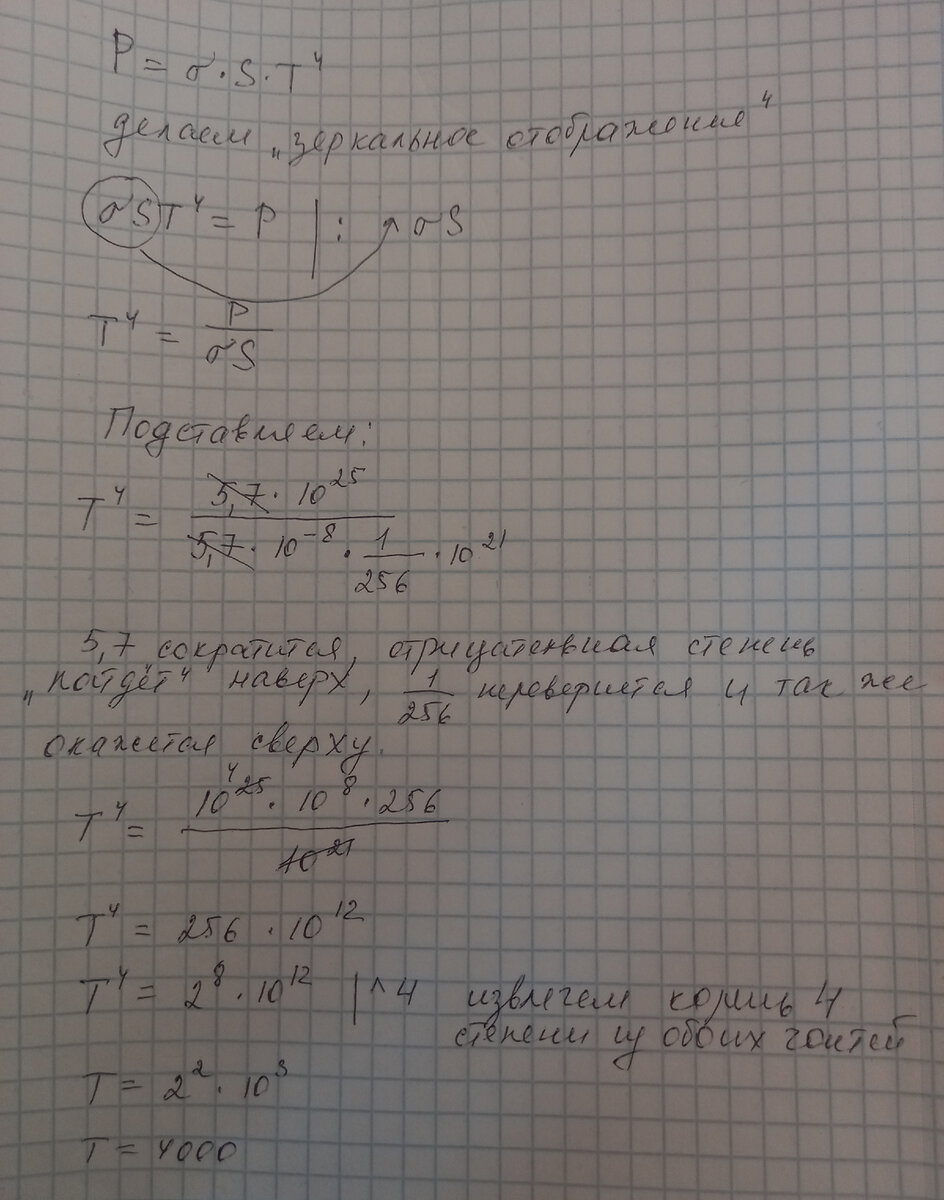 P = σ · S · T⁴
делаем „зеркальное отображение“
σST⁴ = P | : σS
T⁴ = P / σS
Подставляем:
T⁴ = 5,7 · 10²⁵ / 5,7 · 10⁻⁸ · 1/256 · 10²¹
5,7 сократится, отрицательная степень
„пойдёт“ наверх, 1/256 перевернется и так же
окажется сверху.
T⁴ = 10²⁵ ⁴ · 10⁸ · 256 / 10²¹
T⁴ = 256 · 10¹²
T⁴ = 2⁸ · 10¹² | ^ 4 извлечем корень 4
степени из обоих частей
T = 2² · 10³
T = 4000